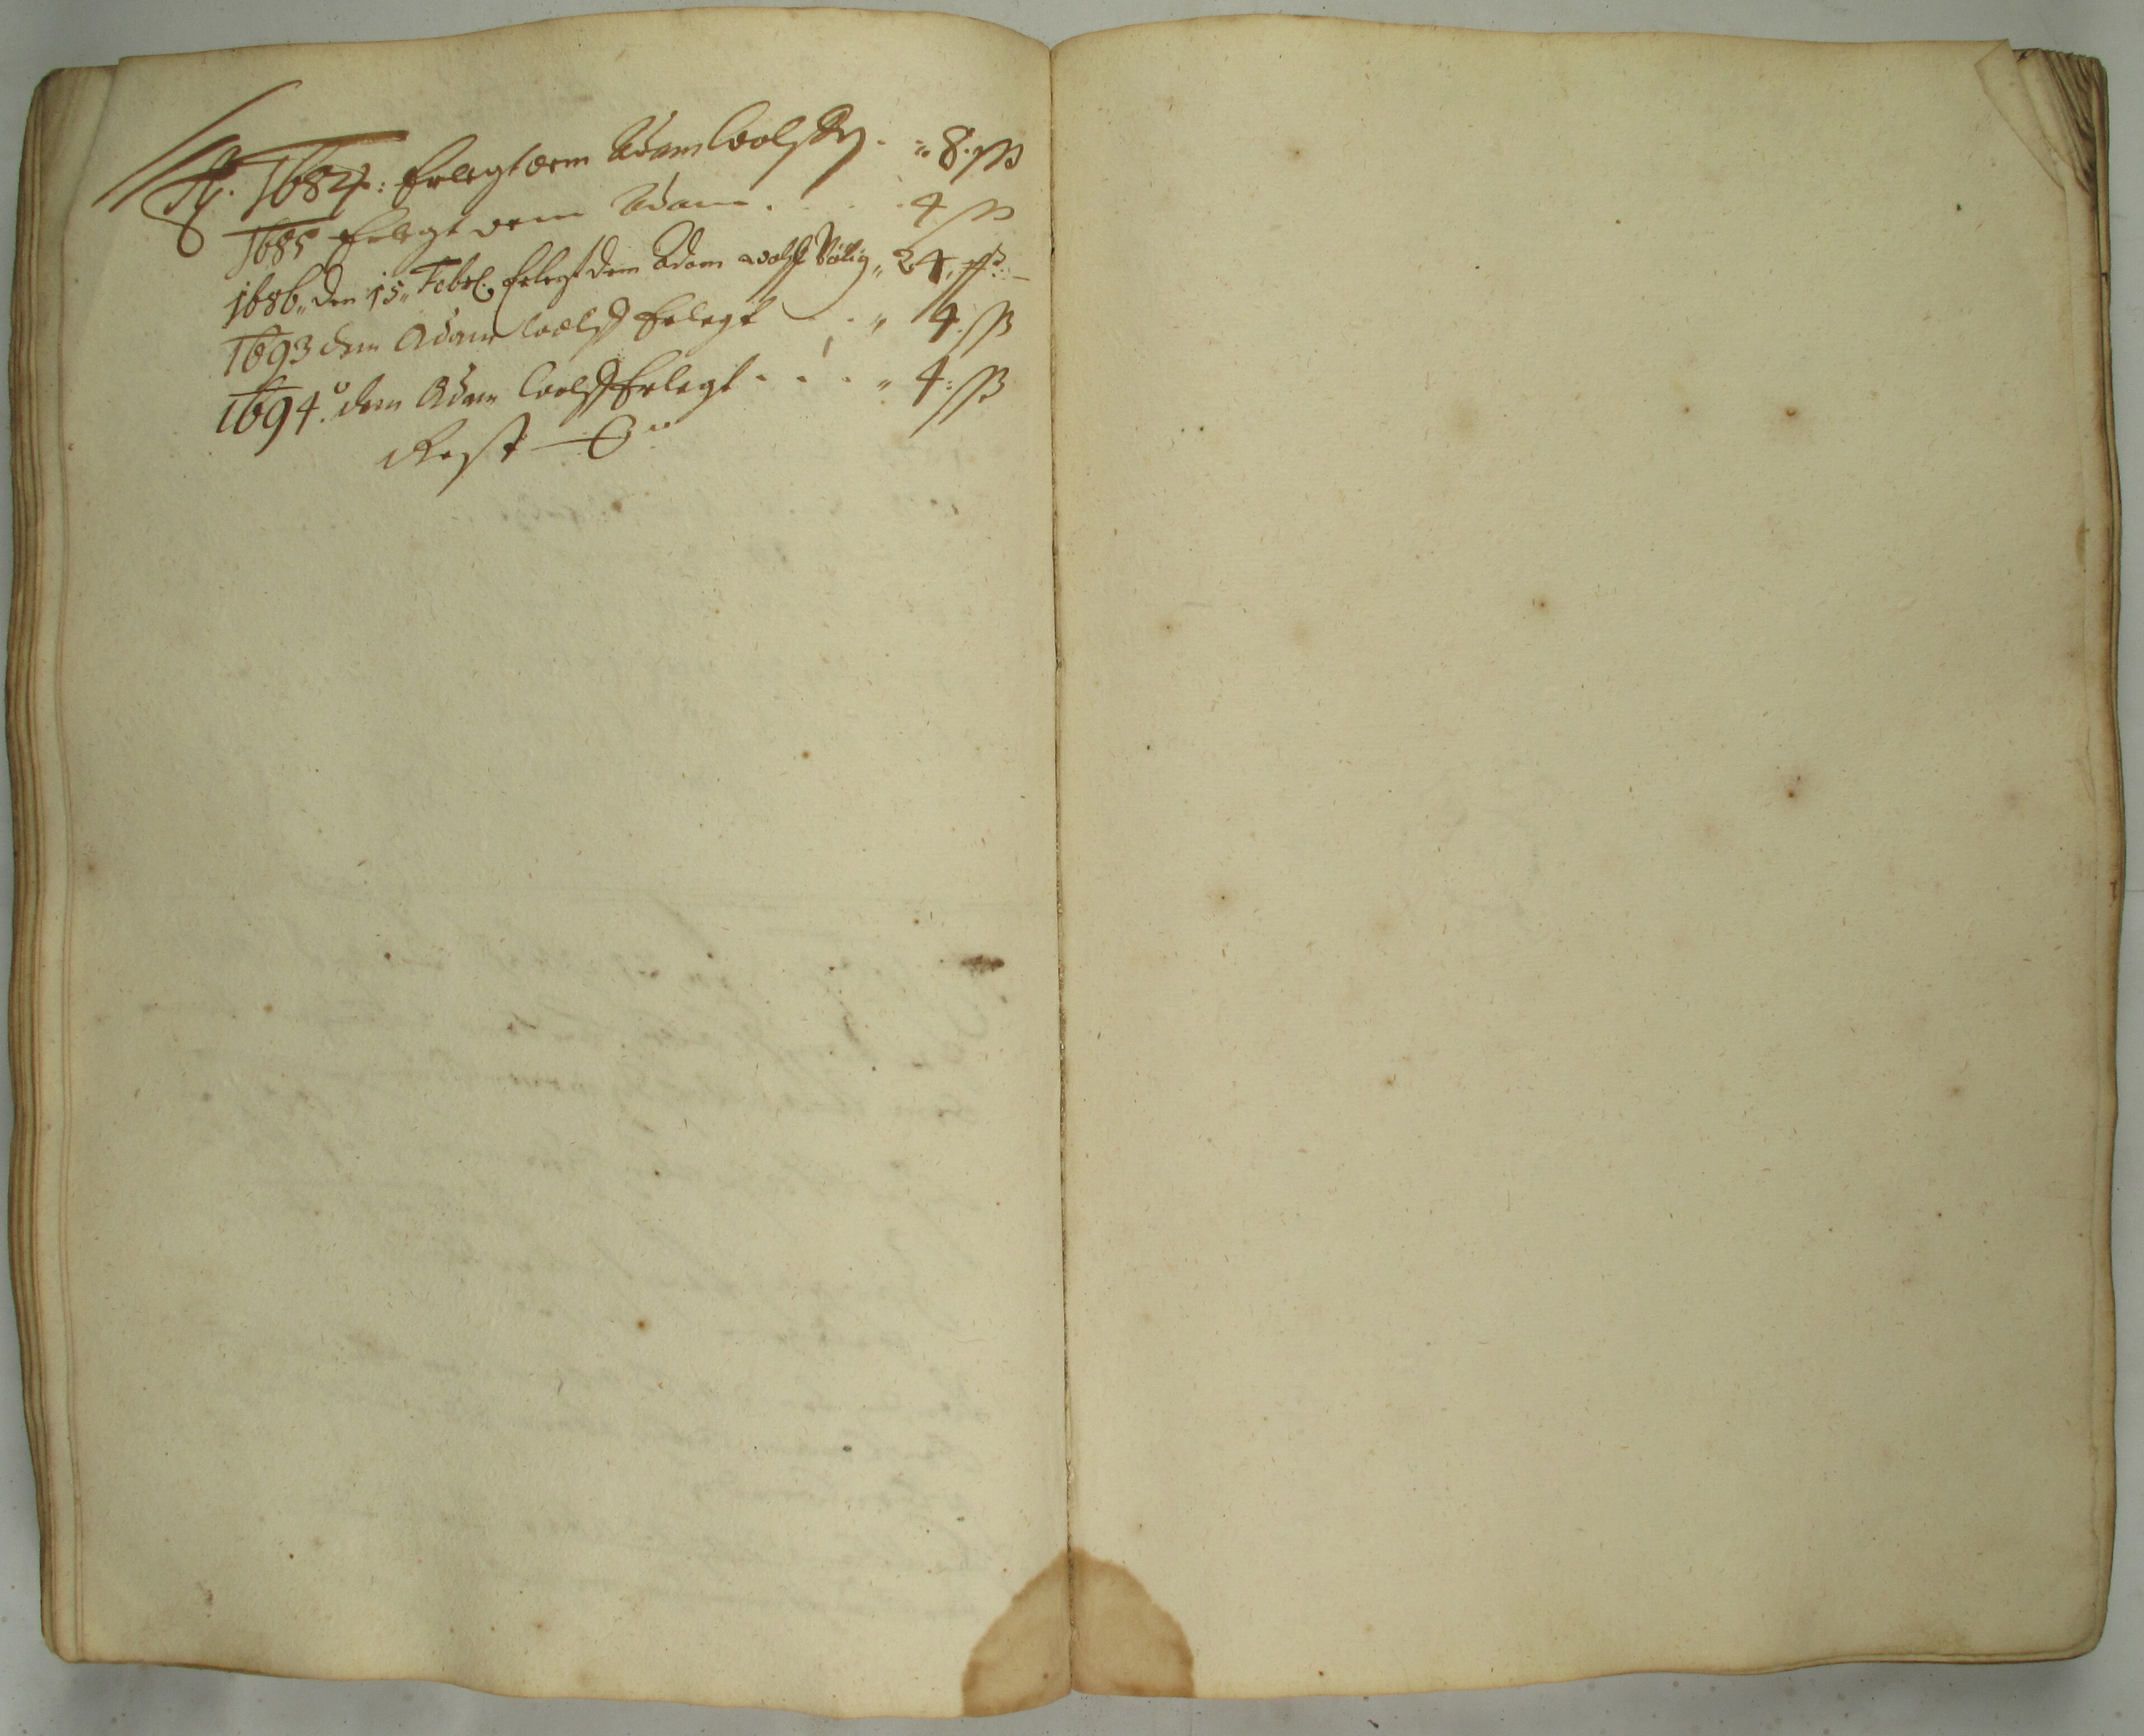 Aō. 1684: Erlegt dem Adam Wolff . „ 8. ß
1685 Erlegt dem Adam . . . 4 ß
1686„ den 15„ Febrl. Erlegt dem Adam Wolff „ 24, ß
1693 dem Adam Wolff Erlegt . . „ 4. ß
1694.° dem Adam Wolff Erlegt . . . „ 4: ß
Rest